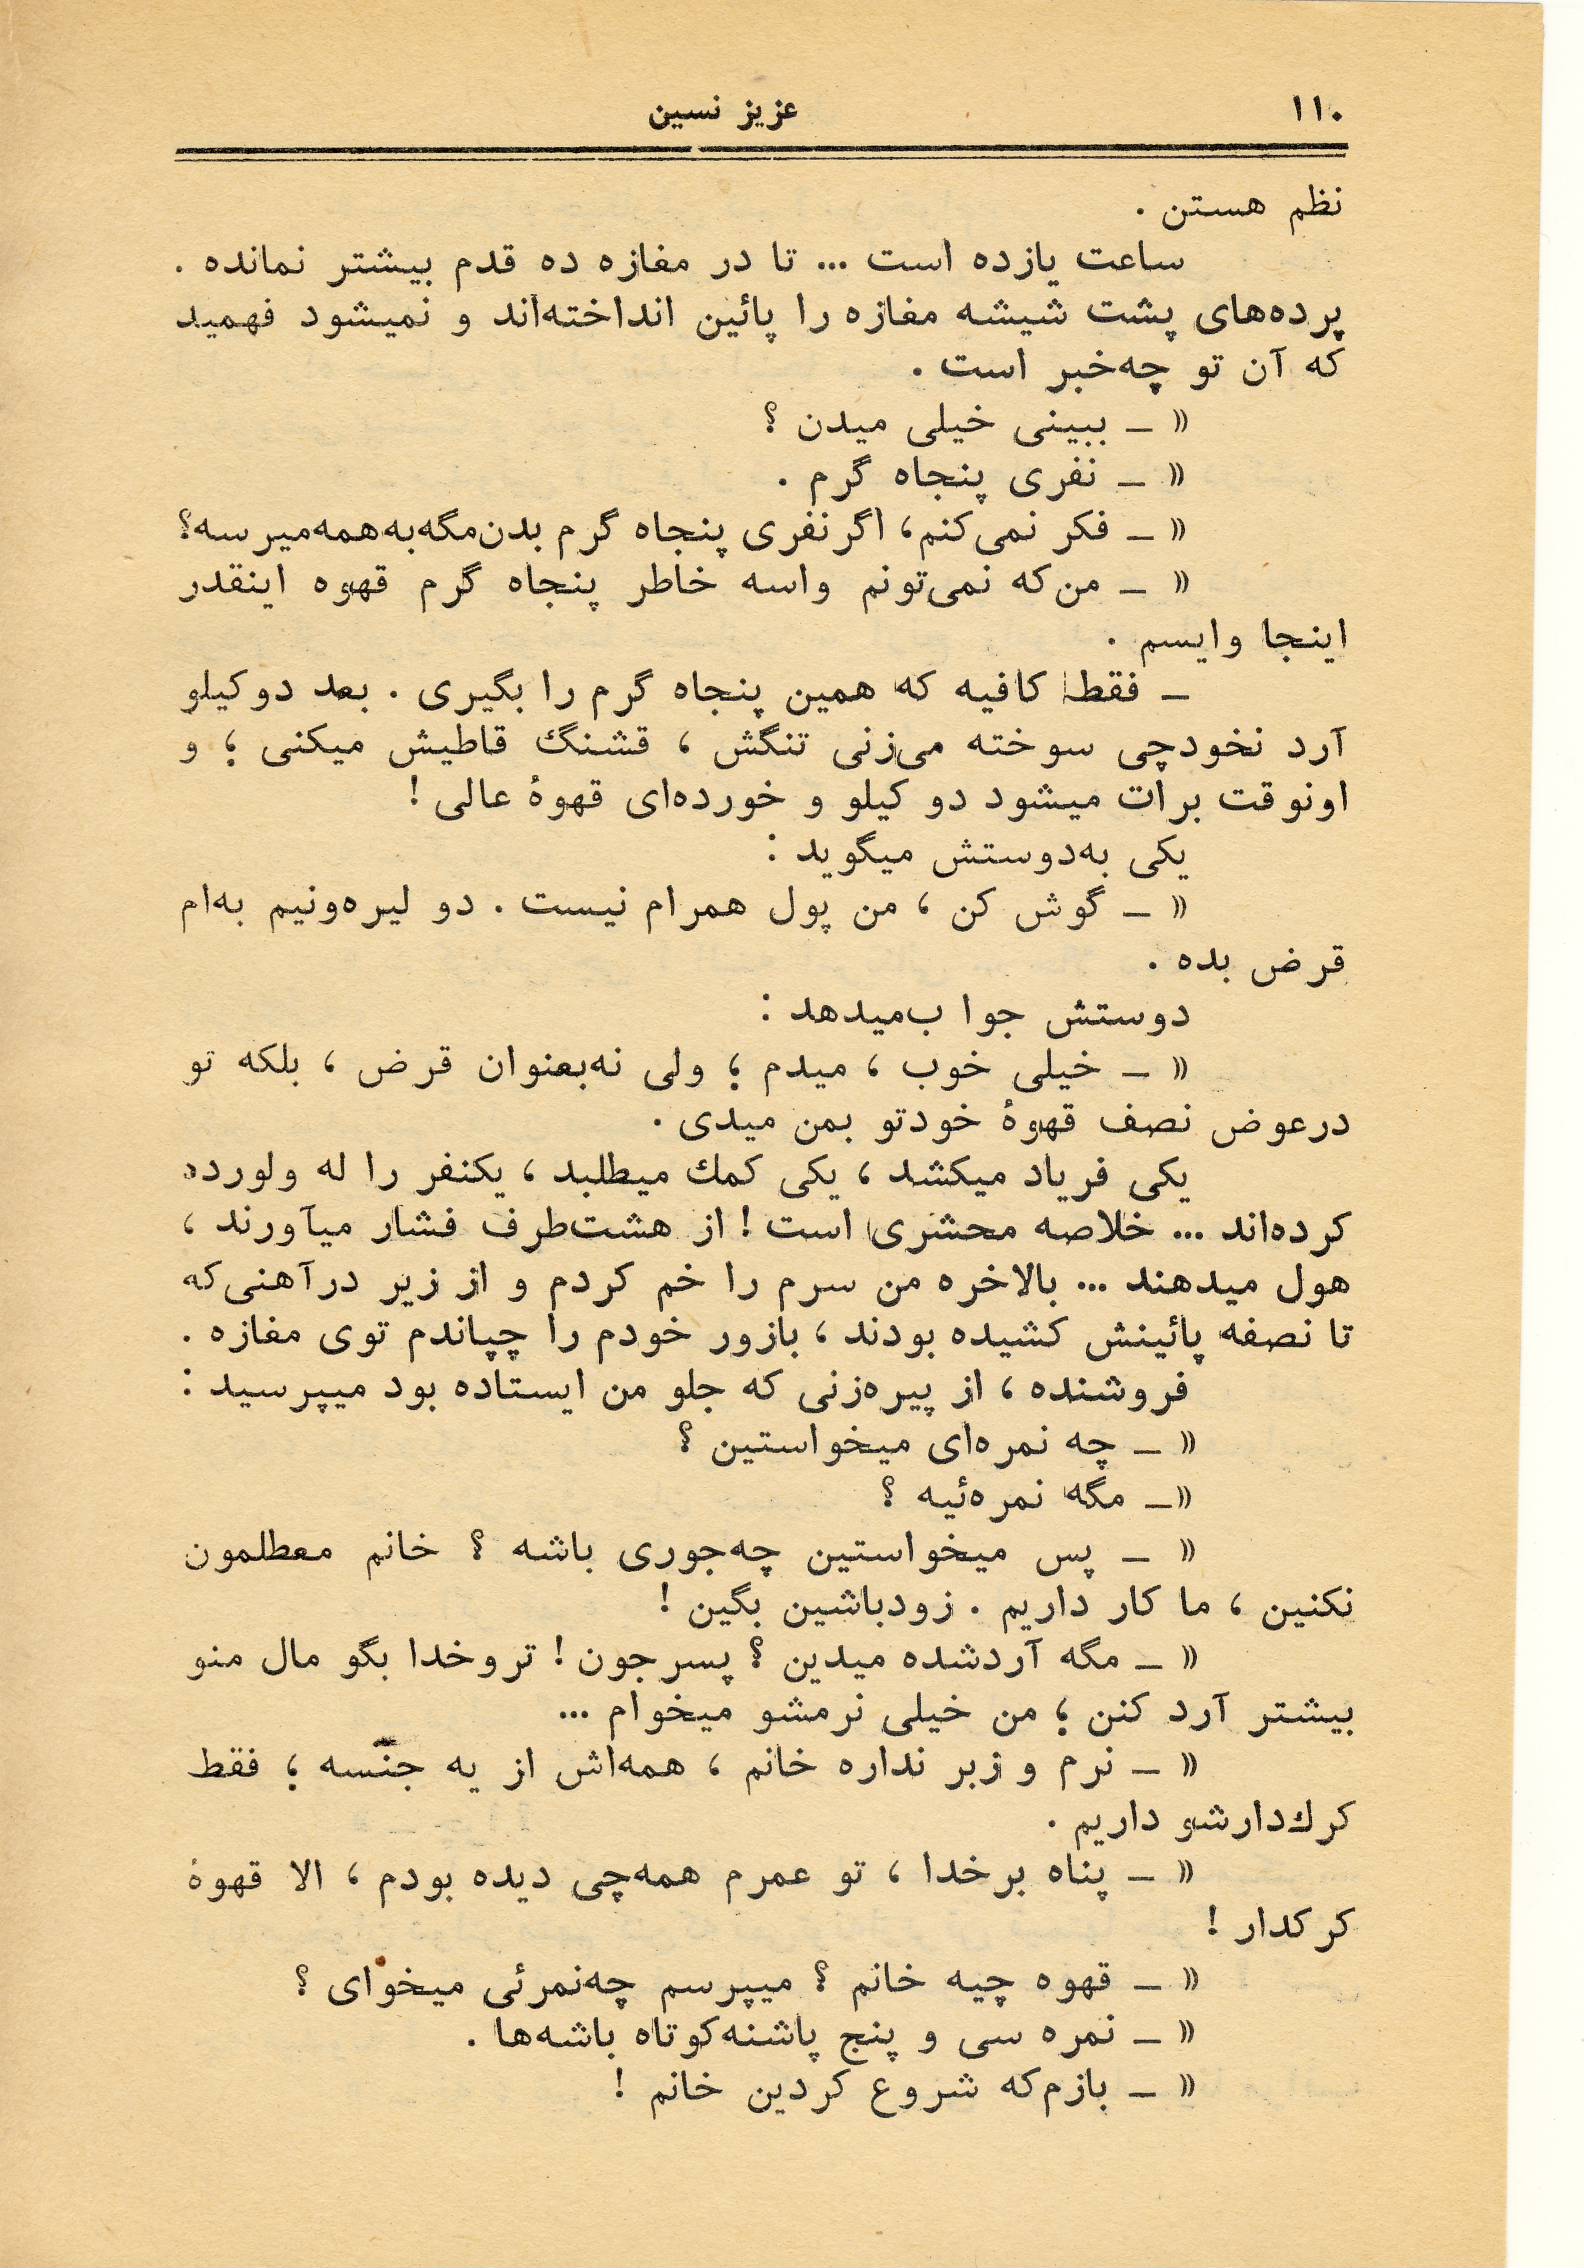 ۱۱۰ عزیز نسین
نظم هستن .
ساعت یازده است ... تا در مغازه ده قدم بیشتر نمانده .
پرده‌های پشت شیشه مغازه را پائین انداخته‌اند و نمیشود فهمید
که آن تو چه‌خبر است .
« ــ ببینی خیلی میدن ؟
« ــ نفری پنجاه گرم .
« ــ فکر نمی‌کنم، اگر نفری پنجاه گرم بدن مگه به همه میرسه؟
« ــ من‌که نمی‌تونم واسه خاطر پنجاه گرم قهوه اینقدر
اینجا وایسم .
ــ فقط کافیه که همین پنجاه گرم را بگیری . بعد دوکیلو
آرد نخودچی سوخته می‌زنی تنگش ، قشنگ قاطیش میکنی ؛ و
اونوقت برات میشود دو کیلو و خورده‌ای قهوهٔ عالی !
یکی به‌دوستش میگوید :
« ــ گوش کن ، من پول همرام نیست . دو لیره‌ونیم به‌ام
قرض بده .
دوستش جواب‌میدهد :
« ــ خیلی خوب ، میدم ؛ ولی نه‌بعنوان قرض ، بلکه تو
درعوض نصف قهوهٔ خودتو بمن میدی .
یکی فریاد میکشد ، یکی کمك میطلبد ، یکنفر را له ولورده
کرده‌اند ... خلاصه محشری است ! از هشت‌طرف فشار میآورند ،
هول میدهند ... بالاخره من سرم را خم کردم و از زیر درآهنی‌که
تا نصفه پائینش کشیده بودند ، بازور خودم را چپاندم توی مغازه .
فروشنده ، از پیره‌زنی که جلو من ایستاده بود میپرسید :
« ــ چه نمره‌ای میخواستین ؟
«ــ مگه نمره‌ئیه ؟
« ــ پس میخواستین چه‌جوری باشه ؟ خانم معطلمون
نکنین ، ما کار داریم . زودباشین بگین !
« ــ مگه آردشده میدین ؟ پسرجون ! تروخدا بگو مال منو
بیشتر آرد کنن ؛ من خیلی نرمشو میخوام ...
« ــ نرم و زبر نداره خانم ، همه‌اش از یه جنسه ؛ فقط
کرك‌دارشو داریم .
« ــ پناه برخدا ، تو عمرم همه‌چی دیده بودم ، الا قهوهٔ
کرکدار !
« ــ قهوه چیه خانم ؟ میپرسم چه‌نمرئی میخوای ؟
« ــ نمره سی و پنج پاشنه‌کوتاه باشه‌ها .
« ــ بازم‌که شروع کردین خانم !